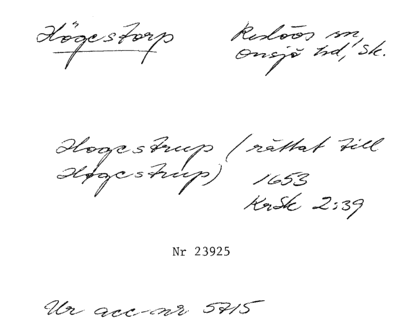 Högestorp
Röstånga sn,
Onsjö hd, Sk.
Hogestrup (rättat till
Høgestrup)
1653
KrSk 2:39
Nr 23925
Ur acc-nr 5715